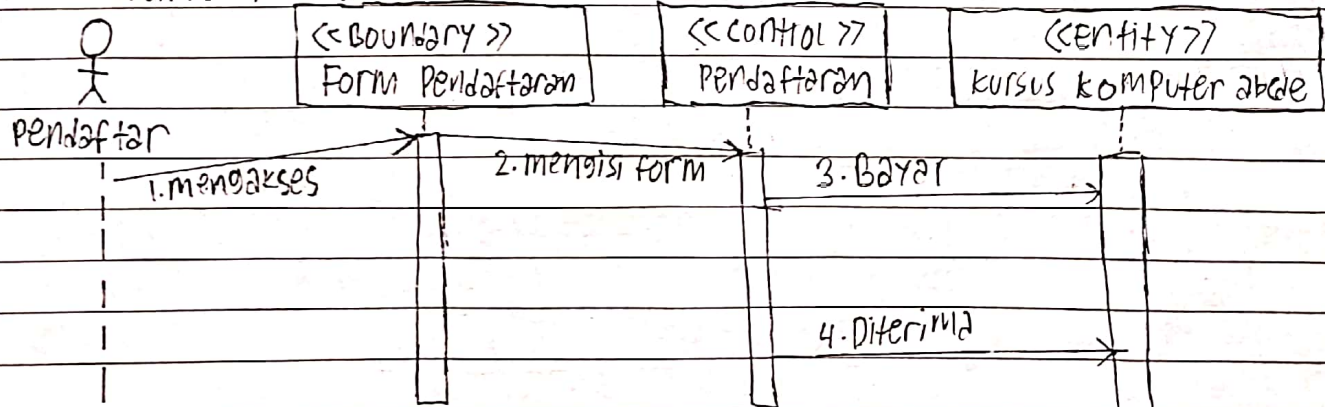 <<Boundary>>
Form Pendaftaran
<<Control>>
Pendaftaran
<<Entity>>
Kursus Komputer abcde
Pendaftar
1. mengakses
2. mengisi form
3. Bayar
4. Diterima